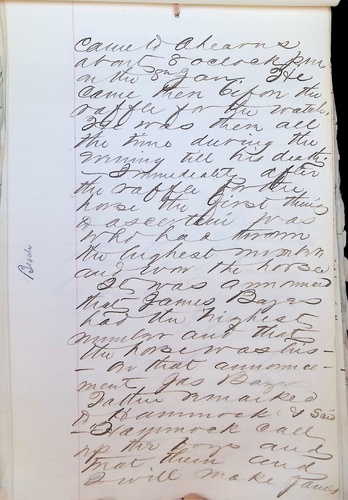 came to Ahearns
about 8 oclock pm
on the 8th Jan. He
came then before the
raffle for the watch.
He was then all
the time during the
evning till his death.
— Immediately after
the raffle for the
horse the first thing
to ascertain was
who had thrown
the highest number
and won the horse
It was announced
that James Bayes
had the highest
number and that
the horse was his —
— on that announce-
ment Jas Bayes
Father remarked
to Hammock & said
— Hammock call
up the boys and
treat them and
I will make James